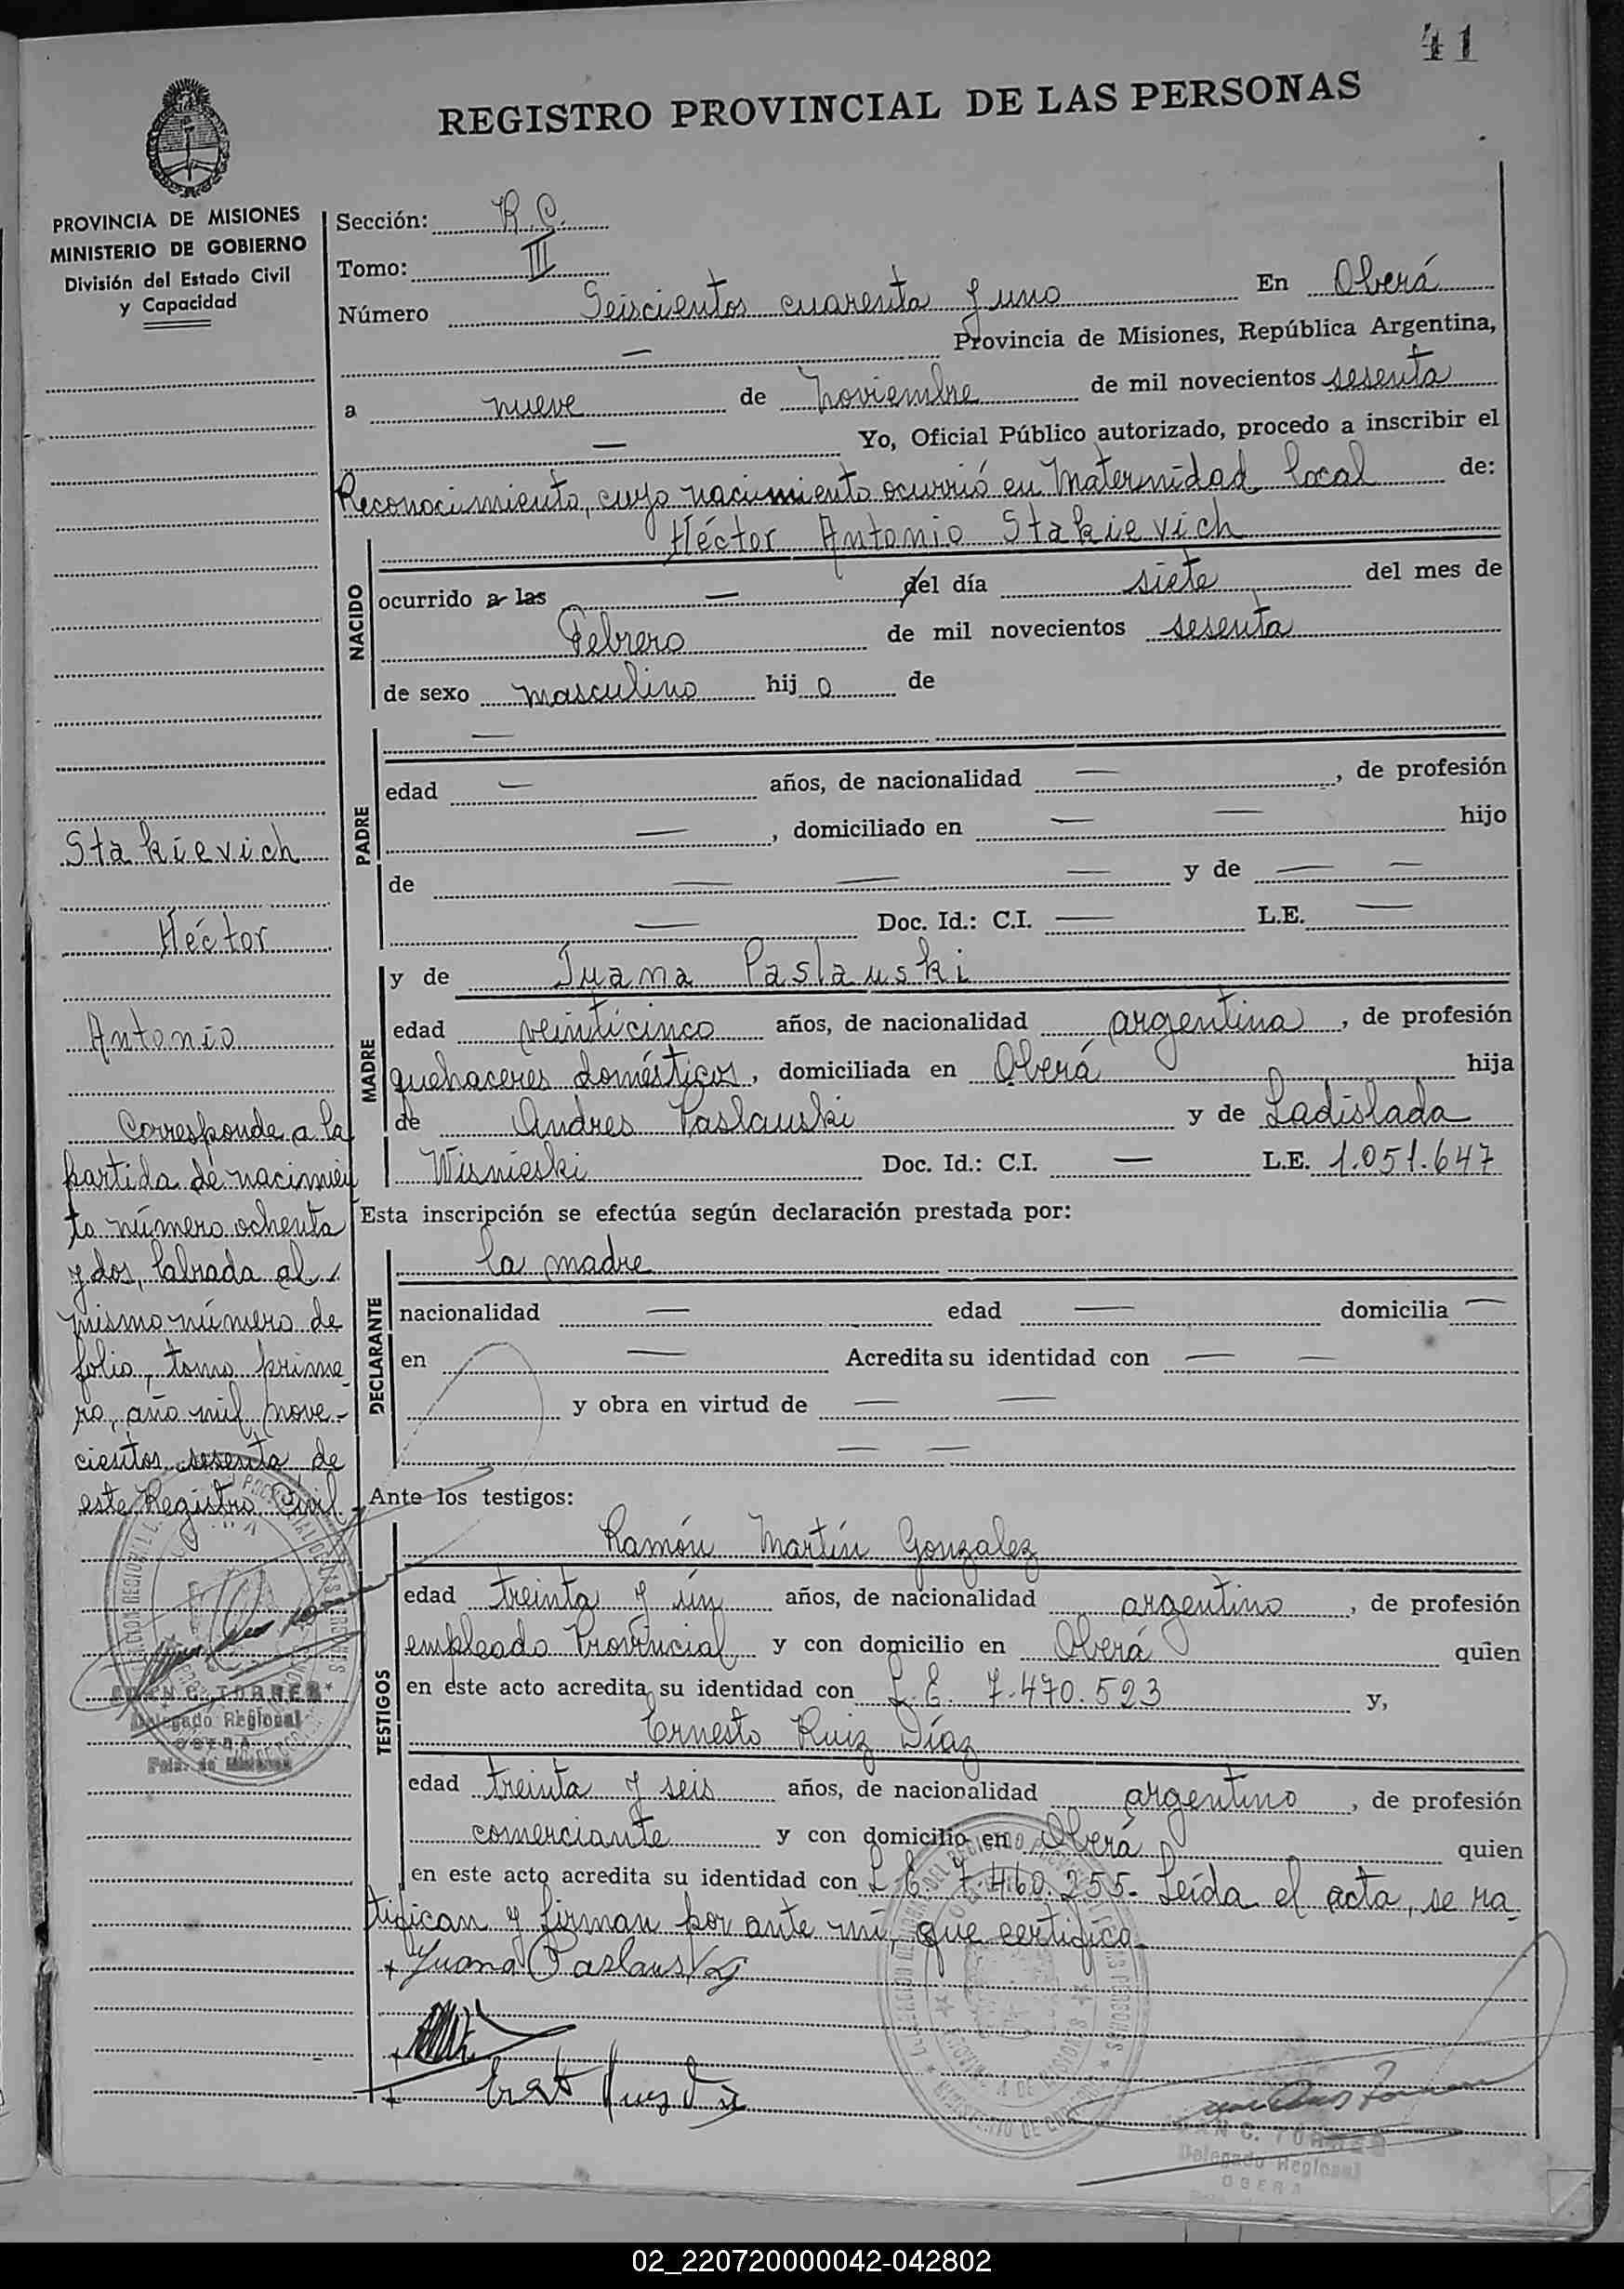 41
REGISTRO PROVINCIAL DE LAS PERSONAS
PROVINCIA DE MISIONES
MINISTERIO DE GOBIERNO
División del Estado Civil
y Capacidad
Sección: R.C.
Tomo: III
Número Seiscientos cuarenta y uno En Oberá
— Provincia de Misiones, República Argentina,
a nueve de Noviembre de mil novecientos sesenta
— Yo, Oficial Público autorizado, procedo a inscribir el
Reconocimiento, cuyo nacimiento ocurrió en Maternidad local de:
Héctor Antonio Stakievich
NACIDO
ocurrido a las — del día siete del mes de
Febrero de mil novecientos sesenta
de sexo masculino hijo de
PADRE
—
edad — años, de nacionalidad — , de profesión
— , domiciliado en — — hijo
de — — — y de — —
— Doc. Id.: C.I. — L.E. —
MADRE
y de Juana Paslauski
edad veinticinco años, de nacionalidad argentina , de profesión
quehaceres domésticos, domiciliada en Oberá hija
de Andres Paslauski y de Ladislada
Wisnieski Doc. Id.: C.I. — L.E. 1.051.647
Esta inscripción se efectúa según declaración prestada por:
DECLARANTE
la madre
nacionalidad — edad — domicilia —
en — Acredita su identidad con — —
y obra en virtud de — —
— —
Ante los testigos:
TESTIGOS
Ramón Martín Gonzalez
edad treinta y ún años, de nacionalidad argentino , de profesión
empleado Provincial y con domicilio en Oberá quien
en este acto acredita su identidad con L.E. 7.470.523 y,
Ernesto Ruiz Díaz
edad treinta y seis años, de nacionalidad argentino , de profesión
comerciante y con domicilio en Oberá quien
en este acto acredita su identidad con L.E. 7.460.255.- Leída el acta, se ra-
tifican y firman por ante mí, que certifico.-
+ Juana Paslauski
Stakievich
Héctor
Antonio
Corresponde a la
partida de nacimien
to número ochenta
y dos, labrada al
mismo número de
folio, tomo prime_
ro, año mil nove-
cientos sesenta, de
este Registro Civil.
JUAN C. TORRES
Delegado Regional
OBERA
Pcia. de Misiones
JUAN C. TORRES
Delegado Regional
OBERA
02_220720000042-042802